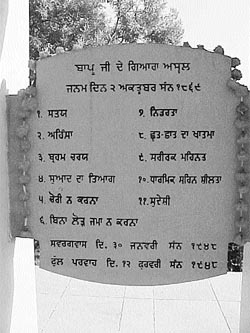 ਬਾਪੂ ਜੀ ਦੇ ਗਿਆਰਾ ਅਸੂਲ
ਜਨਮ ਦਿਨ ੨ ਅਕਤੂਬਰ ਸੰਨ ੧੮੬੯
੧. ਸਤਯ
੨. ਅਹਿੰਸਾ
੩. ਬ੍ਰਹਮ ਚਰਯ
੪. ਸੁਆਦ ਦਾ ਤਿਆਗ
੫. ਚੋਰੀ ਨ ਕਰਨਾ
੬. ਬਿਨਾ ਲੋੜ ਜਮਾ ਨ ਕਰਨਾ
੭. ਨਿਡਰਤਾ
੮. ਛੂਤ-ਛਾਤ ਦਾ ਖਾਤਮਾ
੯. ਸਰੀਰਕ ਮਹਿਨਤ
੧੦. ਧਾਰਮਿਕ ਸਹਿਨ ਸ਼ੀਲਤਾ
੧੧. ਸੁਦੇਸ਼ੀ
ਸਵਰਗਵਾਸ ਦਿ. ੩੦ ਜਨਵਰੀ ਸੰਨ ੧੯੪੮
ਫੁੱਲ ਪਰਵਾਹ ਦਿ. ੧੨ ਫ਼ਰਵਰੀ ਸੰਨ ੧੯੪੮